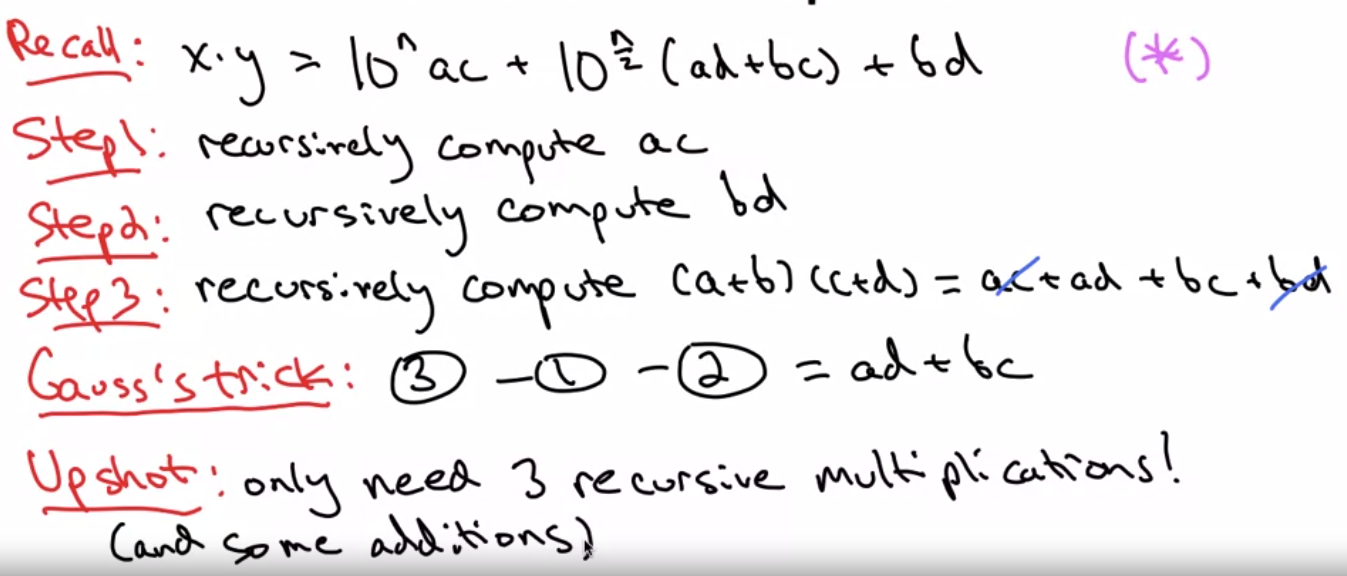 Recall: x·y = 10^n ac + 10^(n/2) (ad+bc) + bd (*)
Step1: recursively compute ac
Step2: recursively compute bd
Step3: recursively compute (a+b)(c+d) = ac + ad + bc + bd
Gauss's trick: ③ - ① - ② = ad + bc
Upshot: only need 3 recursive multiplications!
(and some additions)